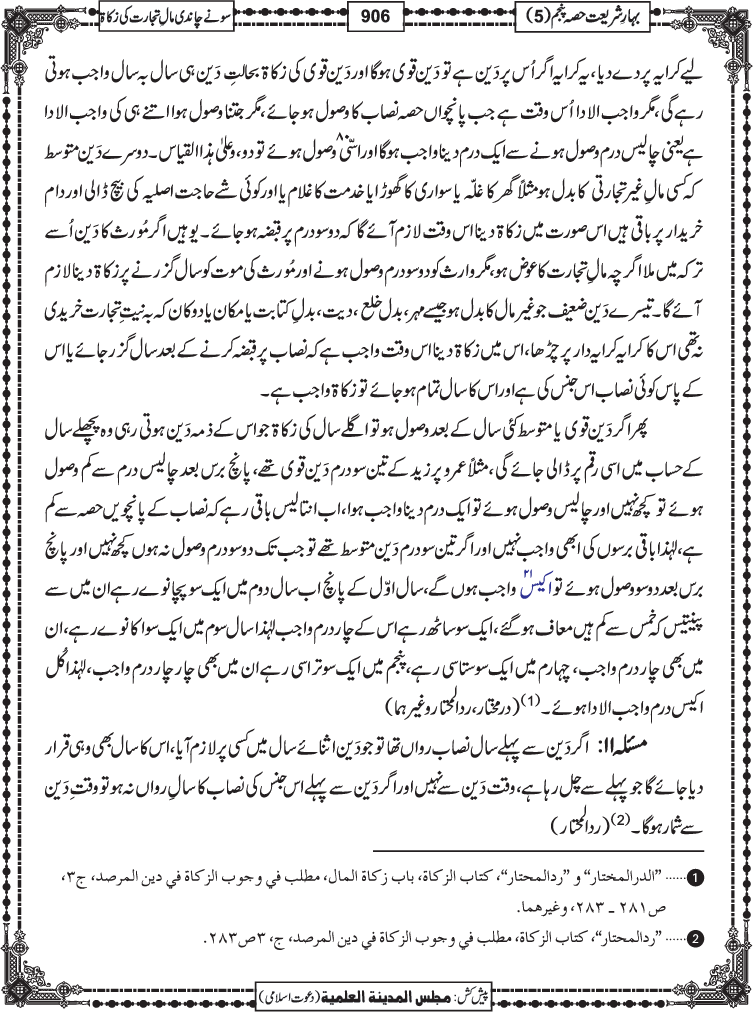 بہارِ شریعت حصہ پنجم (5)
906
سونے چاندی مالِ تجارت کی زکاۃ
لیے کرایہ پر دے دیا، یہ کرایہ اگر اُس پر دَین ہے تو دَین قوی ہوگا اور دَین قوی کی زکاۃ بحالتِ دَین ہی سال بہ سال واجب ہوتی
رہے گی، مگر واجب الادا اُس وقت ہے جب پانچواں حصہ نصاب کا وصول ہو جائے، مگر جتنا وصول ہوا اتنے ہی کی واجب الادا
ہے یعنی چالیس درم وصول ہونے سے ایک درم دینا واجب ہوگا اور اسّی ۸ وصول ہوئے تو دو، وعلیٰ ہذا القیاس۔ دوسرے دَین متوسط
کہ کسی مالِ غیر تجارتی کا بدل ہو مثلاً گھر کا غلّہ یا سواری کا گھوڑا یا خدمت کا غلام یا اور کوئی شے حاجت اصلیہ کی بیچ ڈالی اور دام
خریدار پر باقی ہیں اس صورت میں زکاۃ دینا اس وقت لازم آئے گا کہ دو سو درم پر قبضہ ہو جائے۔ یوہیں اگر مُورث کا دَین اُسے
ترکہ میں ملا اگرچہ مالِ تجارت کا عوض ہو، مگر وارث کو دو سو درم وصول ہونے اور مُورث کی موت کو سال گزرنے پر زکاۃ دینا لازم
آئے گا۔ تیسرے دَین ضعیف جو غیر مال کا بدل ہو جیسے مہر، بدل خلع، دیت، بدلِ کتابت یا مکان یا دوکان کہ بہ نیتِ تجارت خریدی
نہ تھی اس کا کرایہ کرایہ دار پر چڑھا، اس میں زکاۃ دینا اس وقت واجب ہے کہ نصاب پر قبضہ کرنے کے بعد سال گزر جائے یا اس
کے پاس کوئی نصاب اس جنس کی ہے اور اس کا سال تمام ہو جائے تو زکاۃ واجب ہے۔
پھر اگر دَین قوی یا متوسط کئی سال کے بعد وصول ہو تو اگلے سال کی زکاۃ جو اس کے ذمہ دَین ہوتی رہی وہ پچھلے سال
کے حساب میں اسی رقم پر ڈالی جائے گی، مثلاً عمرو پر زید کے تین سو درم دَین قوی تھے، پانچ برس بعد چالیس درم سے کم وصول
ہوئے تو کچھ نہیں اور چالیس وصول ہوئے تو ایک درم دینا واجب ہوا، اب انتالیس باقی رہے کہ نصاب کے پانچویں حصہ سے کم
ہے، لہٰذا باقی برسوں کی ابھی واجب نہیں اور اگر تین سو درم دَین متوسط تھے تو جب تک دو سو درم وصول نہ ہوں کچھ نہیں اور پانچ
برس بعد دو سو وصول ہوئے تو اکیس ۲۱ واجب ہوں گے، سال اوّل کے پانچ اب سال دوم میں ایک سو پچانوے رہے ان میں سے
پینتیس کہ خمس سے کم ہیں معاف ہو گئے، ایک سو ساٹھ رہے اس کے چار درم واجب لہٰذا سال سوم میں ایک سو اکانوے رہے، ان
میں بھی چار درم واجب، چہارم میں ایک سو ستاسی رہے، پنجم میں ایک سو تراسی رہے ان میں بھی چار چار درم واجب، لہٰذا کُل
اکیس درم واجب الادا ہوئے۔ (1) (درمختار، ردالمحتار وغیرہما)
مسئلہ ۱۱: اگر دَین سے پہلے سال نصاب رواں تھا تو جو دَین اثنائے سال میں کسی پر لازم آیا، اس کا سال بھی وہی قرار
دیا جائے گا جو پہلے سے چل رہا ہے، وقت دَین سے نہیں اور اگر دَین سے پہلے اس جنس کی نصاب کا سالِ رواں نہ ہو تو وقتِ دَین
سے شمار ہوگا۔ (2) (ردالمحتار)
1 ...... "الدرالمختار" و "ردالمحتار"، کتاب الزکاۃ، باب زکاۃ المال، مطلب في وجوب الزكاة في دين المرصد، ج۳،
ص۲۸۱ ـ ۲۸۳، وغیرهما.
2 ...... "ردالمحتار"، کتاب الزکاۃ، مطلب في وجوب الزكاة في دين المرصد، ج، ۳ص۲۸۳.
پیش کش: مجلس المدینۃ العلمیۃ (دعوت اسلامی)